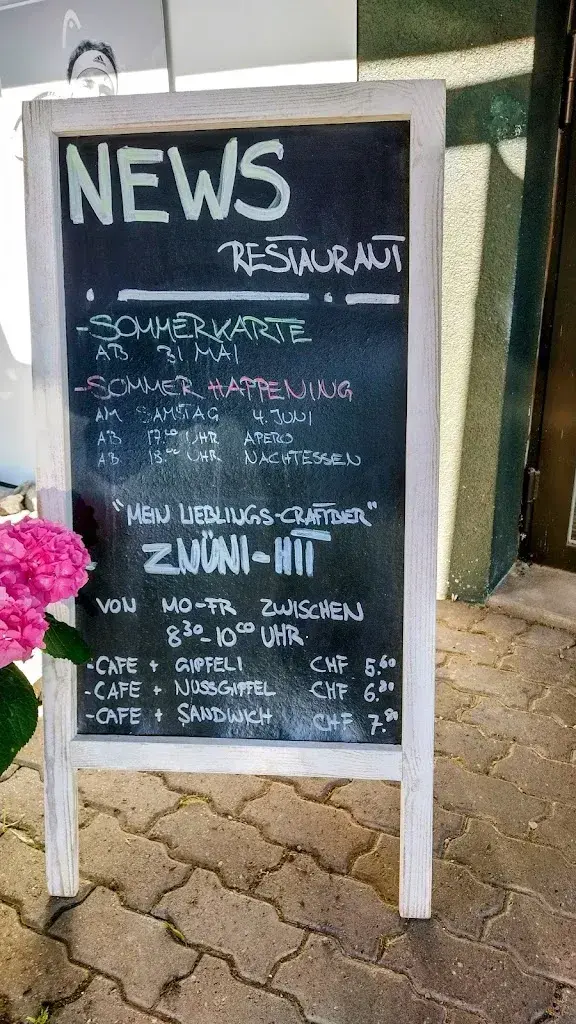 NEWS
RESTAURANT
- SOMMERKARTE
AB 31 MAI
- SOMMER HAPPENING
AM SAMSTAG 4. JUNI
AB 17.00 UHR APERO
AB 18.00 UHR NACHTESSEN
"MEIN LIEBLINGS-CRAFTBIER"
ZNÜNI-HIT
VON MO-FR ZWISCHEN
8 30 - 10 00 UHR
- CAFE + GIPFELI CHF 5.60
- CAFE + NUSSGIPFEL CHF 6.80
- CAFE + SANDWICH CHF 7.80